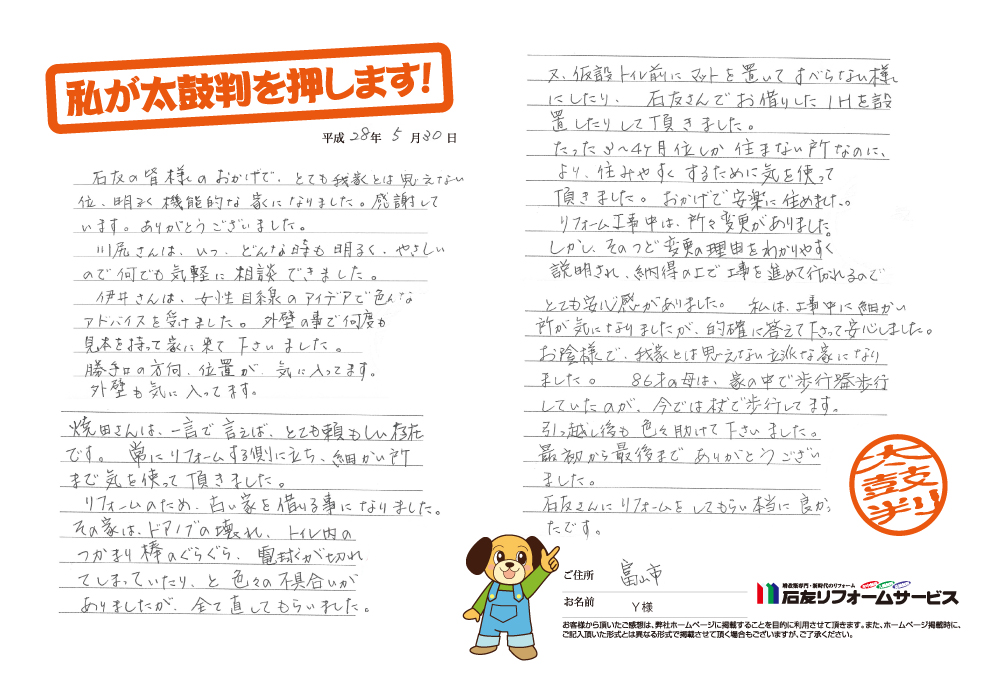 私が太鼓判を押します!
平成 28年 5月30日
石友の皆様のおかげで、とても我家とは思えない
位、明るく機能的な家になりました。感謝して
います。ありがとうございました。
川尻さんは、いつ、どんな時も明るく、やさしい
ので何でも気軽に相談できました。
伊井さんは、女性目線のアイデアで色んな
アドバイスを受けました。外壁の事で何度も
見本を持って家に来て下さいました。
勝手口の方向、位置が、気に入ってます。
外壁も気に入ってます。
焼田さんは、一言で言えば、とても頼もしい存在
です。常にリフォームする側に立ち、細かい所
まで気を使って頂きました。
リフォームのため、古い家を借りる事になりました。
その家は、ドアノブの壊れ、トイレ内の
つかまり棒のぐらぐら、電球が切れ
てしまっていたり、と色々の不具合いが
ありましたが、全て直してもらいました。
又、仮設トイレ前にマットを置いてすべらない様
にしたり、石友さんでお借りしたIHを設
置したりして頂きました。
たった3〜4ヶ月位しか住まない所なのに、
より、住みやすくするために気を使って
頂きました。おかげで安楽に住めました。
リフォーム工事中は、所々変更がありました。
しかし、そのつど変更の理由をわかりやすく
説明され、納得の上で工事を進めて行かれるので
とても安心感がありました。私は、工事中に細かい
所が気になりましたが、的確に答えて下さって安心しました。
お陰様で、我家とは思えない立派な家になり
ました。86才の母は、家の中で歩行器歩行
していたのが、今では杖で歩行してます。
引っ越し後も色々助けて下さいました。
最初から最後までありがとうござい
ました。
石友さんにリフォームをしてもらい本当に良かっ
たです。
太鼓判
ご住所 富山市
お名前 Y様
増改築専門・新時代のリフォーム
石友リフォームサービス
お客様から頂いたご感想は、弊社ホームページに掲載することを目的に利用させて頂きます。また、ホームページ掲載時に、
ご記入頂いた形式とは異なる形式で掲載させて頂く場合もございますが、ご了承ください。